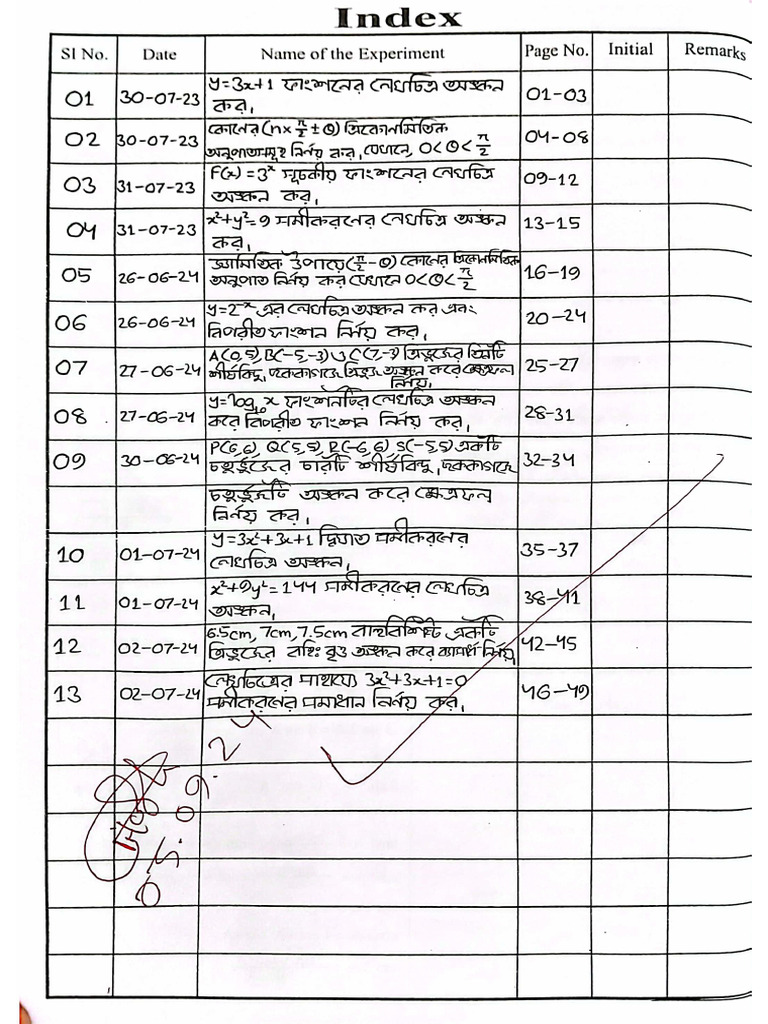 Index
Sl No. Date Name of the Experiment Page No. Initial Remarks
01 30-07-23 y=3x+1 ফাংশনের লেখচিত্র অঙ্কন 01-03
কর।
02 30-07-23 কোনের (n×π/2±θ) ত্রিকোনমিতিক 04-08
অনুপাতসমূহ নির্নয় কর, যেখানে, 0<θ<π/2
03 31-07-23 F(x)=3^x সূচকীয় ফাংশনের লেখচিত্র 09-12
অঙ্কন কর।
04 31-07-23 x²+y²=9 সমীকরনের লেখচিত্র অঙ্কন 13-15
কর।
05 26-06-24 জ্যামিতিক উপায়ে (π/2-θ) কোনের ত্রিকোনমিতিক 16-19
অনুপাত নির্নয় কর যেখানে 0<θ<π/2
06 26-06-24 y=2^-x এর লেখচিত্র অঙ্কন কর এবং 20-24
বিপরীত ফাংশন নির্নয় কর।
07 27-06-24 A(0,5), B(-5,-3) ও C(7,-3) ত্রিভুজের তিনটি 25-27
শীর্ষবিন্দু, ছককাগজে ত্রিভুজ অঙ্কন করে ক্ষেত্রফল
নির্নয়।
08 27-06-24 y=log₁₀x ফাংশনটির লেখচিত্র অঙ্কন 28-31
করে বিপরীত ফাংশন নির্নয় কর।
09 30-06-24 P(6,6), Q(5,5), R(-6,6), S(-5,5) একটি 32-34
চতুর্ভুজের চারটি শীর্ষবিন্দু, ছককাগজে
চতুর্ভুজটি অঙ্কন করে ক্ষেত্রফল
নির্নয় কর।
10 01-07-24 y=3x²+3x+1 দ্বিঘাত সমীকরনের 35-37
লেখচিত্র অঙ্কন।
11 01-07-24 x²+9y²=144 সমীকরনের লেখচিত্র 38-41
অঙ্কন।
12 02-07-24 6.5cm, 7cm, 7.5cm বাহুবিশিষ্ট একটি 42-45
ত্রিভুজের বহিঃ বৃত্ত অঙ্কন করে ব্যাসার্ধ নির্নয়
13 02-07-24 লেখচিত্রের মাধ্যমে 3x²+3x+1=0 46-49
সমীকরনের সমাধান নির্নয় কর।
05.09.24